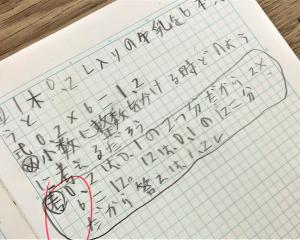 1本0.2L入りの牛乳を6本
うと
式 0.2×6=1.2
め 小数に整数をかける時どのよう
に考えるだろう
考 0.2は0.1の2つ分だから 2×
6=12。12は、0.1の12こ分
だから答えは1.2L